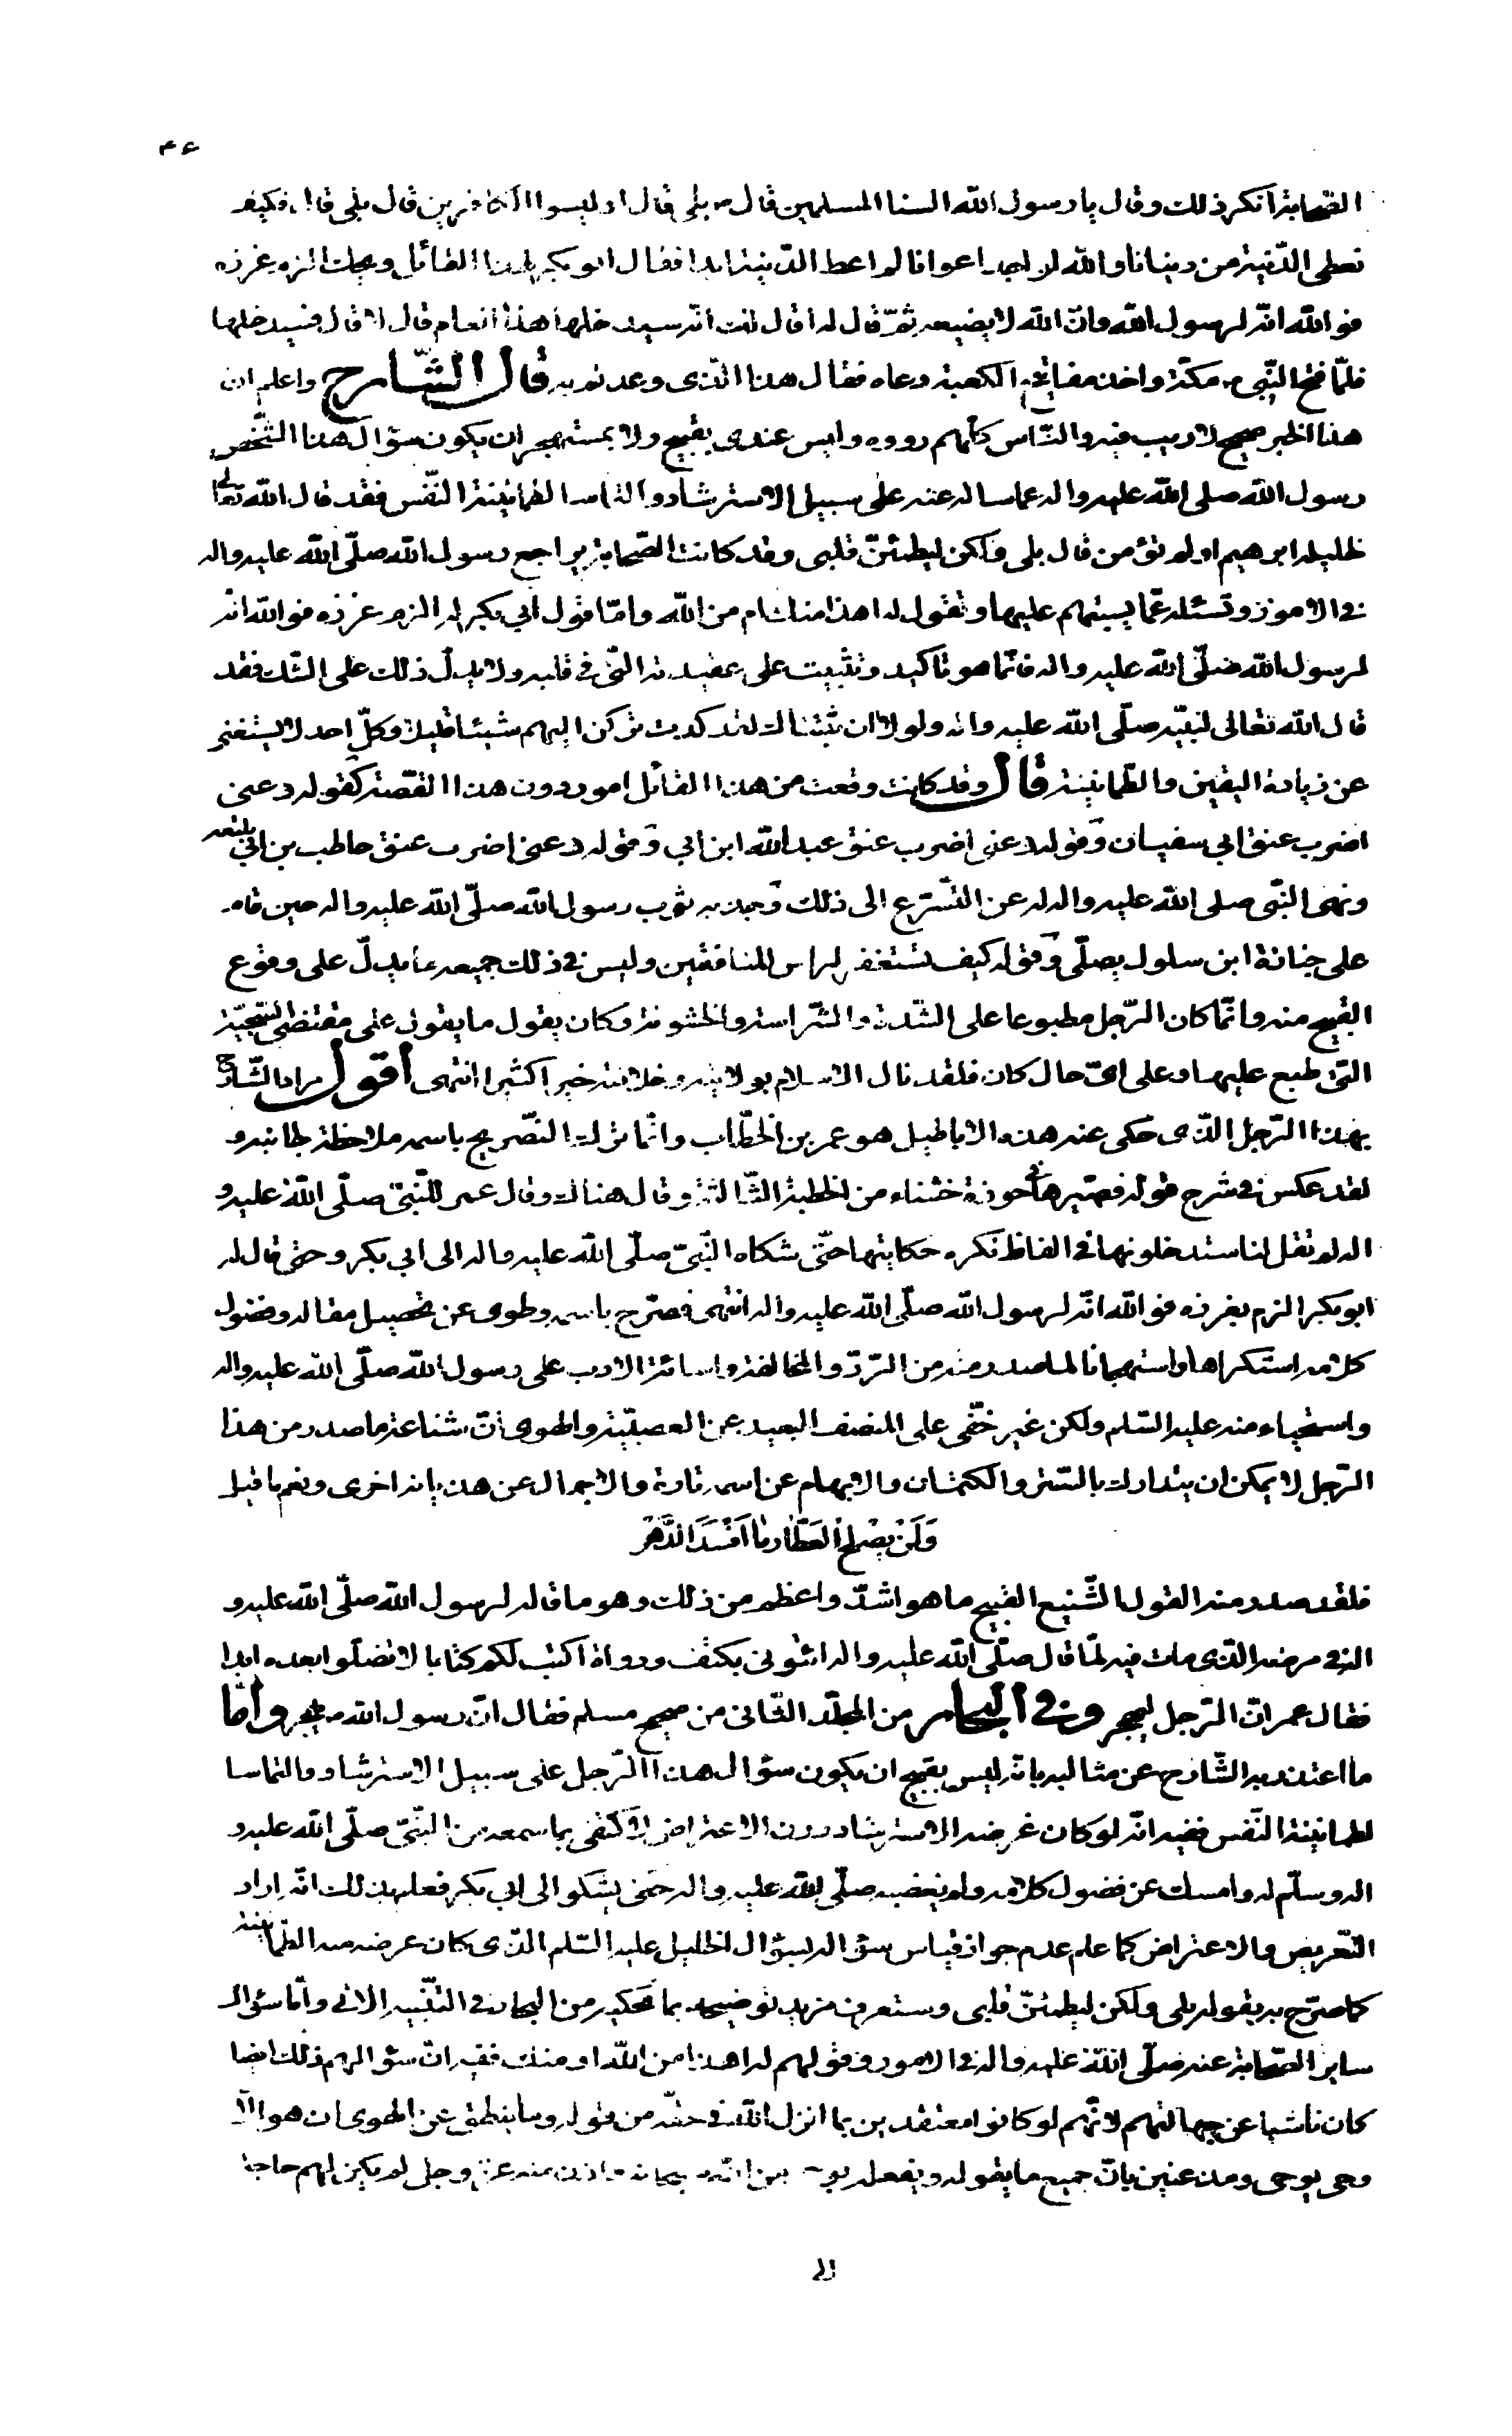 ۴۶
الصّحابة انكر ذلك وقال يا رسول الله السنا المسلمين قال ص بلى قال اوليسوا الكافرين قال بلى قال فكيف
نعطى الدّنيّة من ديننا والله لو اجد اعوانا لم اعط الدّنيّة ابدا فقال ابو بكر لهذا القائل ويحك الزم غرزه
فو الله انّه لرسول الله وانّ الله لا يضيعه ثمّ قال له أقال لك انّه سيدخلها هذا العام قال لا قال فسيدخلها
فلمّا فتح النّبي ص مكة واخذ مفاتيح الكعبة دعاه فقال هذا الّذى وعدتم به قال الشّارح واعلم ان
هذا الخبر صحيح لا ريب فيه والنّاس كلّهم رووه وليس عندى بقبيح ولا بمستهجن ان يكون سؤال هذا الشّخص
رسول الله صلى الله عليه واله عما ساله عنه على سبيل الاسترشاد والتماسا لطمانينة النّفس فقد قال الله تعالى
لخليله ابرهيم اولم تؤمن قال بلى ولكن ليطمئنّ قلبى وقد كانت الصّحابة يراجع رسول الله صلّى الله عليه واله
فى الامور وتسئله عمّا يستبهم عليها وتقول له اهذا منك ام من الله وامّا قول ابي بكر له الزم غرزه فو الله انّه
لرسول الله صلّى الله عليه واله فانّما هو تاكيد وتثبيت على عقيدته الّتى فى قلبه ولا يدلّ ذلك على الشّك فقد
قال الله تعالى لنبيّه صلّى الله عليه واله ولولا ان ثبّتناك لقد كدت تركن اليهم شيئا قليلا وكلّ احد لا يستغنى
عن زيادة اليقين والطّمانينة قال وقد كانت وقعت من هذا القائل امور دون هذا القصّة كقوله دعنى
اضرب عنق ابي سفيان وقوله دعنى اضرب عنق عبد الله ابن ابي وقوله دعنى اضرب عنق حاطب بن ابي بلتعه
ونهى النّبى صلى الله عليه واله له عن التّسرّع الى ذلك وجذبه ثوب رسول الله صلّى الله عليه واله حين قام
على جنازة ابن سلول يصلّى وقوله كيف تستغفر لراس المنافقين وليس فى ذلك جميعه ما يدلّ على وقوع
القبيح منه وانّما كان الرّجل مطبوعا على الشّدة والشّراسة والخشونة وكان يقول ما يقول على مقتضى السّجيّة
الّتى طبع عليها وعلى اىّ حال كان فلقد نال الاسلام بولايته وخلافته خيرا كثيرا انتهى أقول مراد الشّارح
بهذا الرّجل الّذى حكى عنه هذه الاباطيل هو عمر بن الخطّاب وانّما ترك التصريح باسمه ملاحظة لجانبه و
لقد عكس فى شرح قوله فصيّرها فى حوزة خشناء من الخطبة الثّالثة وقال هناك وقال عمر للنّبىّ صلّى الله عليه و
اله لم تقل لنا ستدخلونها فى الفاظ نكره حكايتها حتّى شكاه النّبيّ صلّى الله عليه واله الى ابي بكر وحتى قال له
ابو بكر الزم بغرزه فو الله انّه لرسول الله صلّى الله عليه واله انتهى فصرّح باسمه وطوى عن تحصيل مقاله وفضول
كلامه استكراها واستهجانا لما صدر منه من التّردّ والمخالفة واسائة الادب على رسول الله صلّى الله عليه واله
واستحياء منه عليه السّلم ولكن غير خفّى على المنصف البعيد عن العصبيّة والهوى انّ شناعة ما صدر من هذا
الرّجل لا يمكن ان يتدارك بالسّتر والكتمان والابهام عن اسمه تارة والاجمال عن هذيانه اخرى ونعم ما قيل
وَلَنْ يُصْلِحَ الْعَطّارُ ما اَفْسَدَ الدَّهْرُ
فلقد صدر منه القول الشّنيع القبيح ما هو اشدّ واعظم من ذلك وهو ما قاله لرسول الله صلّى الله عليه و
اله فى مرضه الّذى مات فيه لمّا قال صلّى الله عليه واله ائتونى بكتف ودواة اكتب لكم كتابا لا تضلّوا بعده ابدا
فقال عمر انّ الرّجل ليهجر وفى البحار من المجلّد الثّانى من صحيح مسلم فقال انّ رسول الله ص يهجر وأمّا
ما اعتذر به الشّارح عن مثالبه بانّه ليس بقبيح ان يكون سؤال هذا الرّجل على سبيل الاسترشاد والتماسا
لطمانينة النّفس ففيه انّه لو كان غرضه الاسترشاد دون الاعتراض لاكتفى بما سمعه من النّبىّ صلّى الله عليه و
اله وسلّم له وامسك عن فضول كلامه ولم يغضبه صلّى الله عليه واله حتّى يشكو الى ابي بكر فعلم بذلك انّه اراد
التّعريض والاعتراض كما علم عدم جواز قياس سؤاله بسؤال الخليل عليه السّلم الّذى كان غرضه منه الطّمانينة
كما صرّح به بقوله بلى ولكن ليطمئنّ قلبى وستعرف مزيد توضيحه بما نحكيه من البحار فى التّنبيه الاتى وأمّا سؤال
ساير الصّحابة عنه صلّى الله عليه واله فى الامور وقولهم له اهذا من الله او منك ففيه انّ سؤالهم ذلك ايضا
كان ناشيا عن جهالتهم لانّهم لو كانوا معتقدين بما انزل الله فى حقّه من قوله وما ينطق عن الهوى ان هو الّا
وحى يوحى ومذعنين بانّ جميع ما يقوله ويفعله بوحى من الله سبحانه واذن منه عزّ وجل لم يكن لهم حاجة
الى